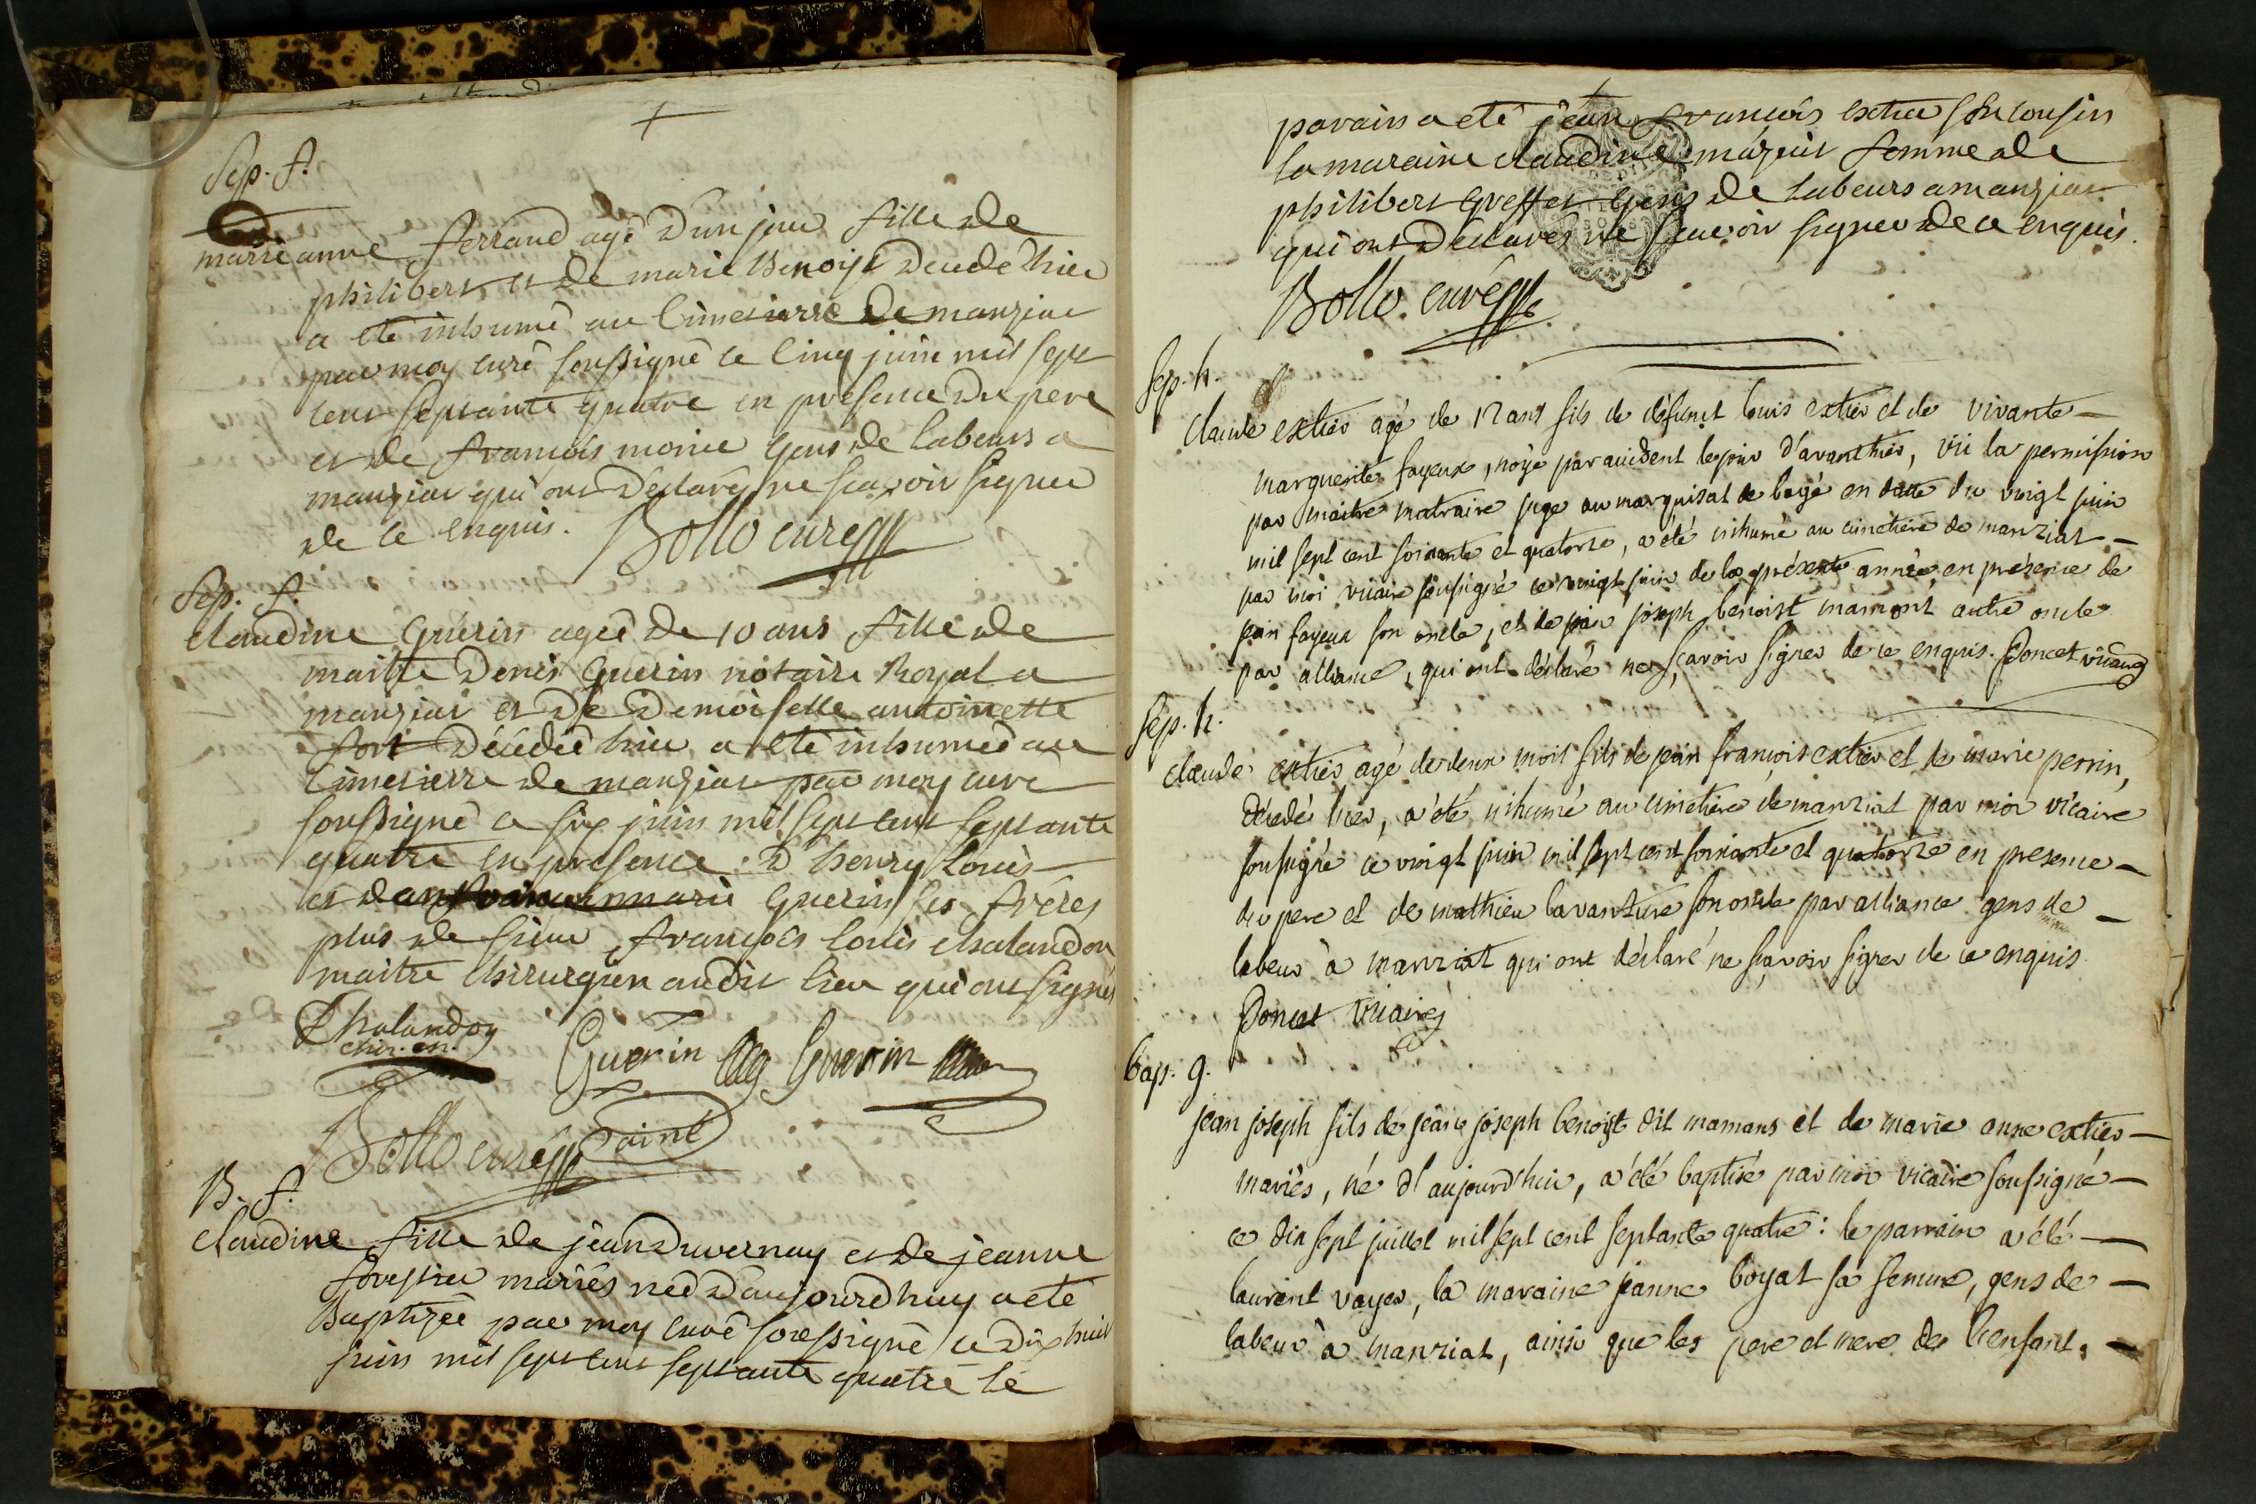 +
Sep. f.
marie anne ferrand agé d'un jour fille de
philibert et de marie Benoist decedé hier
a eté inhumé au Cimetierre de manziat
par moy curé soussigné ce Cinq juin mil sept
cent septante quatre en presence du pere
et de françois moine gens de labeurs a
manziat qui ont déclarés ne scavoir signer
de ce enquis. Bollo curé
Sep. f.
claudine Guérin ageé de 10 ans fille de
maitre Denis Guérin notaire Royal a
manziat et de Demoiselle antoinette
fort décedeé hier a eté inhumeé au
Cimetierre de manziat par moy curé
soussigné ce six juin mil sept cent septante
quatre en presence d'henry Louis
et marie Guerin ses fréres
plus de sieur françois Louis chalandon
maitre chirurgien audit lieu qui ont signés
Chalandon
chir. en.
Guerin Guerin
ainé
Bollo curé
B. f.
claudine fille de jean Duvernay et de jeanne
forestier mariés neé d'aujourdhuy a eté
Baptizeé par moy curé soussigné ce dix huit
juin mil sept cent septante quatre le
parain a eté jean françois extier son cousin
la maraine claudine mazuit femme de
philibert greffet gens de labeurs a manziat
qui ont déclarés ne scavoir signer de ce enquis.
Bollo. curé
Sep. h.
claude extier agé de 12 ans fils de défunct louis extier et de vivante
marguerite fayeux, noÿé par accident le jour d'avanthier, vû la permission
par maitre matraire juge au marquisat de bagé en datte du vingt juin
mil sept cent soixante et quatorze, a été inhumé au cimetière de manziat
par moi vicaire soussigné ce vingt juin de la présente année en présence de
jean fayeux son oncle, et de jean joseph benoist mamont autre oncle
par alliance, qui ont déclaré ne sçavoir signer de ce enquis. Poncet vicaire
Sep. h.
claude extier agé de deux mois fils de jean françois extier et de marie perrin,
décedé hier, a été inhumé au cimetière de manziat par moi vicaire
soussigné ce vingt juin mil sept cent soixante et quatorze en presence
du pere et de mathieu lavanture son oncle par alliance gens de
labeur à manziat qui ont déclaré ne sçavoir signer de ce enquis
Poncet vicaire
bap. g.
jean joseph fils de jean joseph benoist dit mamans et de marie anne extier
mariés, né d'aujourd'hui, a été baptisé par moi vicaire soussigné
ce dix sept juillet mil sept cent septante quatre : le parrain a été
laurent vayer, la maraine jeanne boyat sa femme, gens de
labeur à manziat, ainsi que les pere et mere de l'enfant.